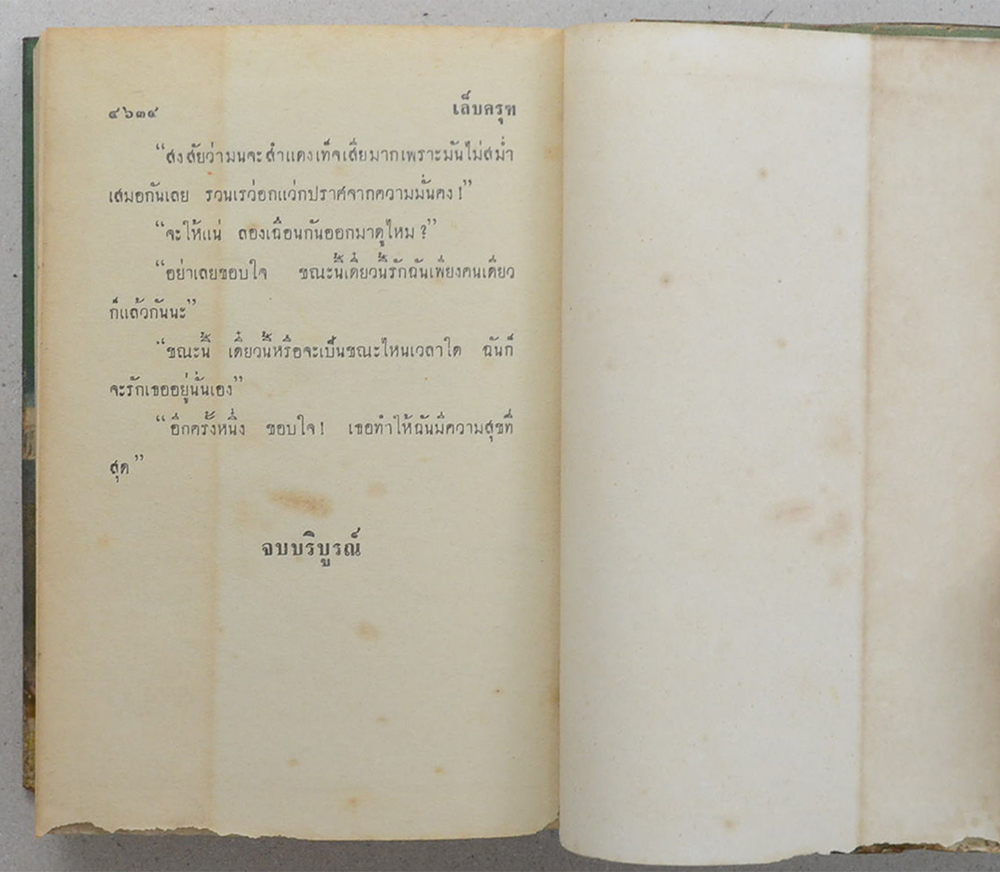 ๔๖๓๙ เล็บครุฑ
“สงสัยว่ามนจะสำแดงเท็จเสียมากเพราะมันไม่สม่ำ
เสมอกันเลย รวนเรว่อกแว่กปราศจากความมั่นคง!”
“จะให้แน่ ลองเฉือนกันออกมาดูไหม?”
“อย่าเลยขอบใจ ขณะนี้เดี๋ยวนี้รักฉันเพียงคนเดียว
ก็แล้วกันนะ”
“ขณะนี้ เดี๋ยวนี้หรือจะเป็นขณะไหนเวลาใด ฉันก็
จะรักเธออยู่นั่นเอง”
“อีกครั้งหนึ่ง ขอบใจ! เธอทำให้ฉันมีความสุขที่
สุด”
จบบริบูรณ์